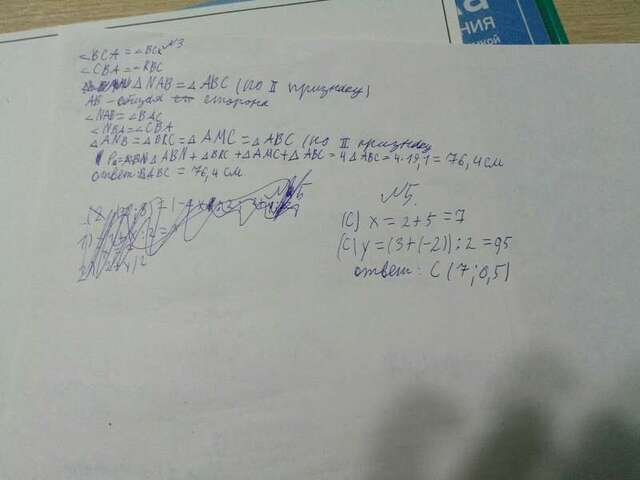 ка
ЕНИЯ
№3
∠BCA = ∠BCK
∠CBA = ∠KBC
△NAB = △ABC (по II признаку)
AB - общая сторона
∠NAB = ∠BAC
∠NBA = ∠CBA
△ANB = △BKC = △AMC = △ABC (по II признаку
△ABN + △BKC + △AMC + △ABC = 4△ABC = 4·19,1 = 76,4 см
ответ: ABC = 76,4 см
№5.
(C) x = 2+5 = 7
(C) y = (3+(-2)):2 = 95
ответ: C (7; 0,5)